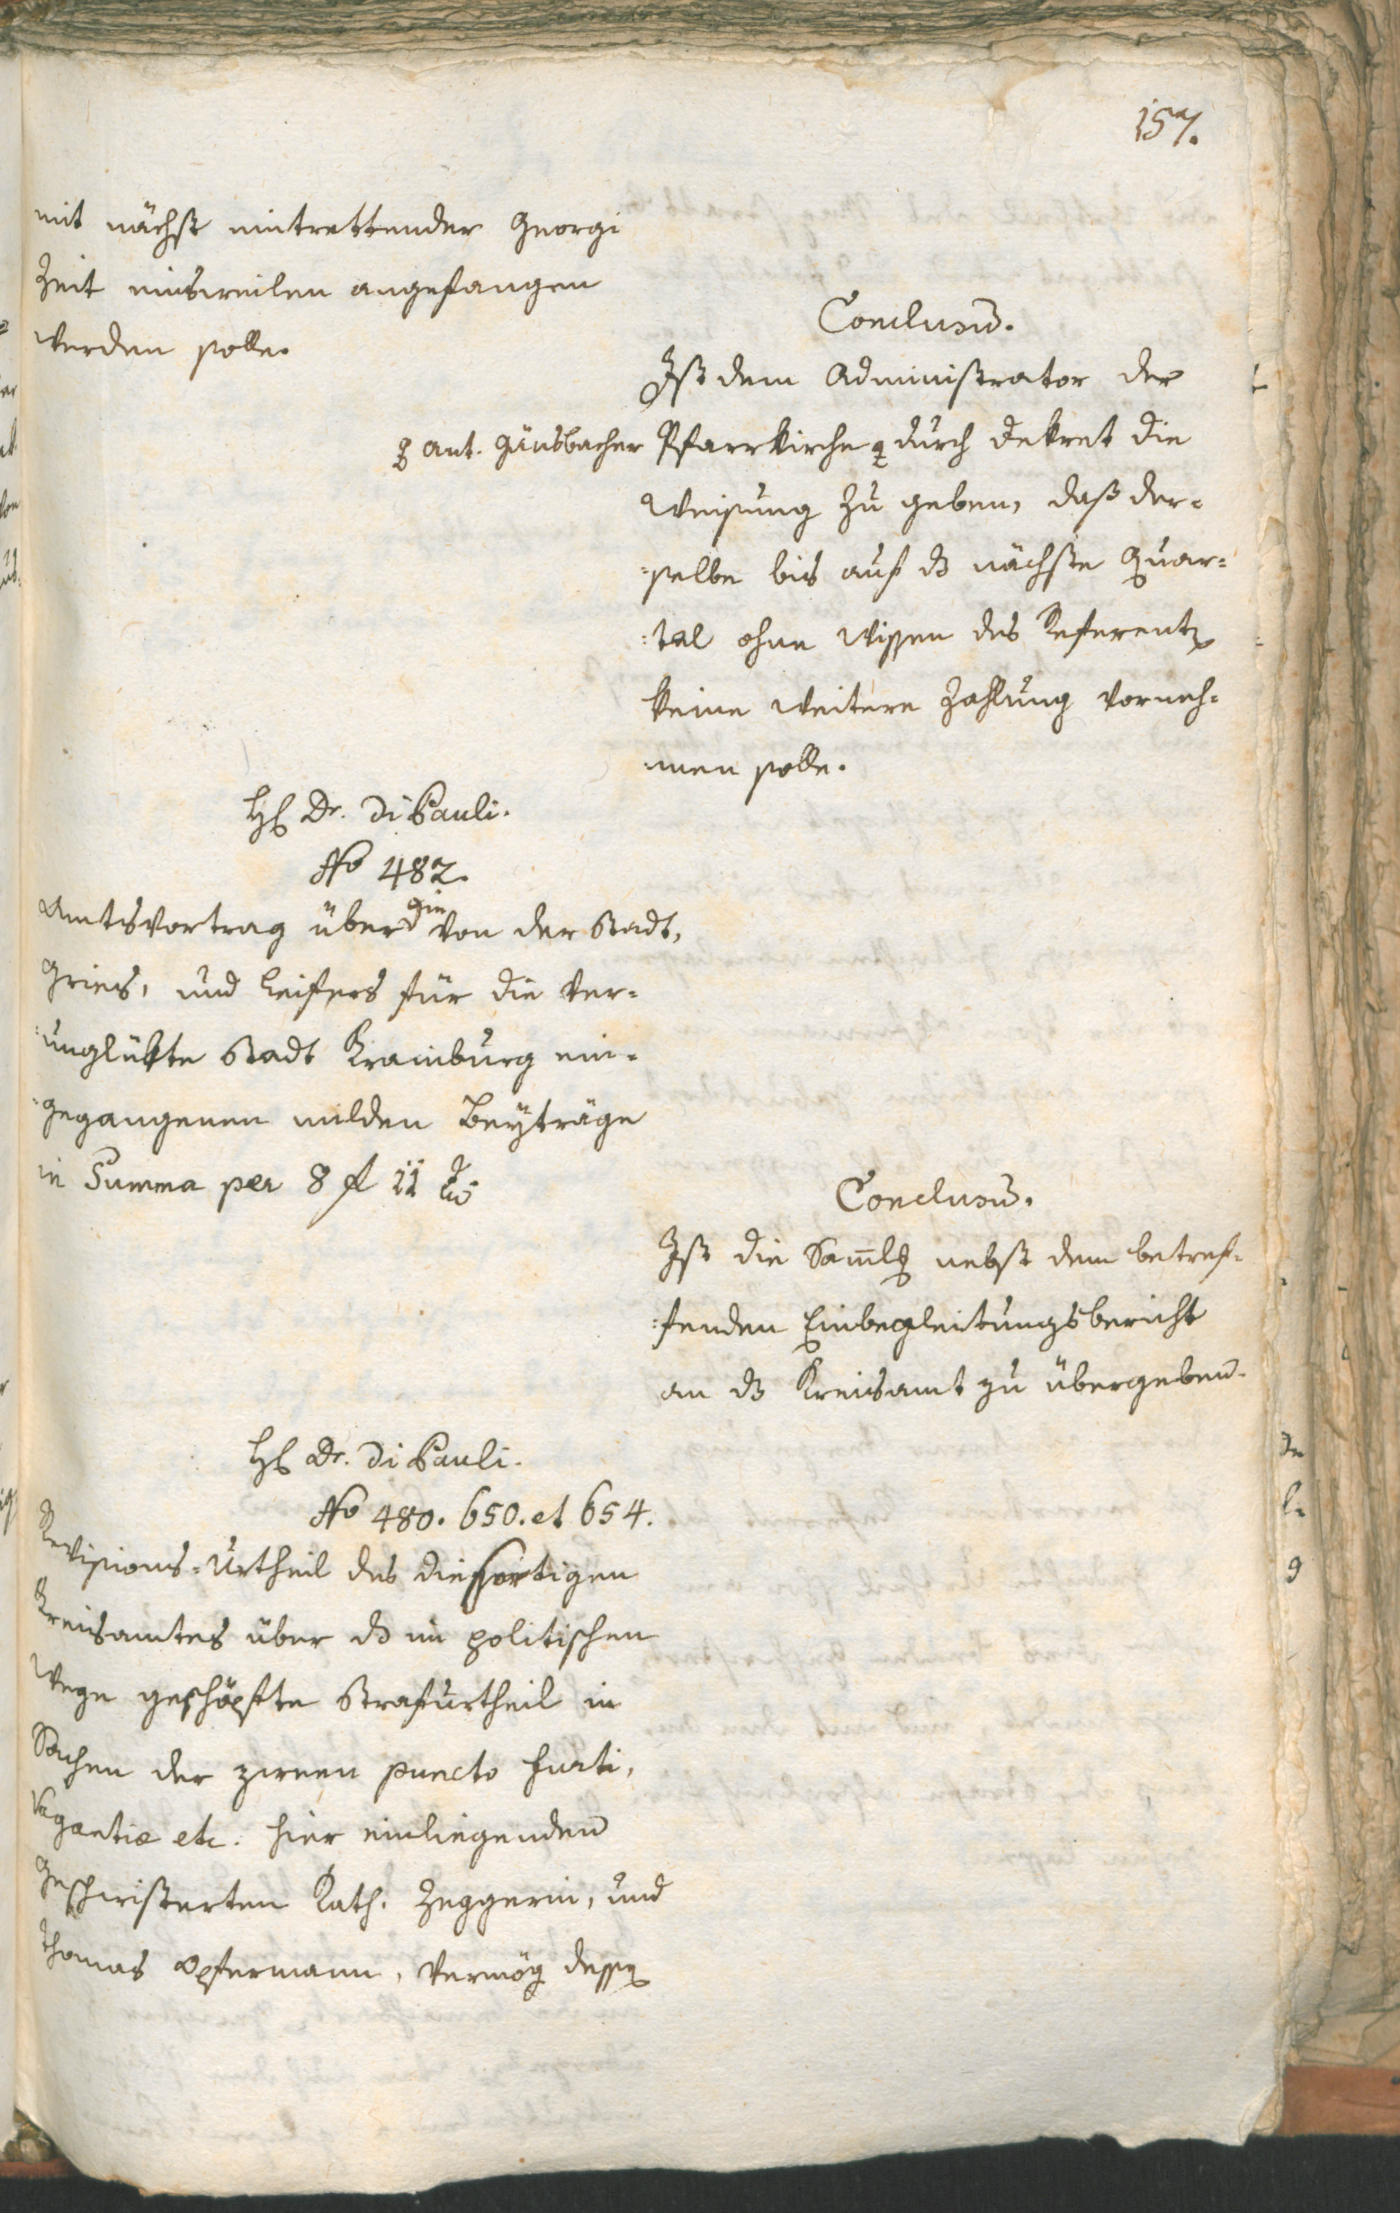 157.
mit nächst eintrettender Georgi
Zeit einsweilen angefangen
werden solle.
Conclusū.
Ist dem Administrator der
Pfarrkirche durch Dekret die
Ant. Gänsbacher
Weisung zu geben, daß der=
=selbe bis auf dz nächste Quar=
=tal ohne Wissen des Referent
keine weitere Zahlung vorneh=
men solle.
H. Dr. Di Pauli.
No 482.
Amtsvortrag über die von der Stadt,
Gries, und Leifers für die ver=
=unglükte Stadt Krainburg ein=
=gegangenen milden Beyträge
in Summa per 8 f 11 xr
Conclusū.
Ist die Sam̄lg nebst dem betref=
=fenden Einbegleitungsbericht
an dz Kreisamt zu übergeben.
H. Dr. Di Pauli.
No 480. 650. et 654.
Revisions=Urtheil des diesseitigen
Kreisamtes über dz im politischen
Wege geschöpfte Strafurtheil in
Sachen der zween puncto furti,
vagantiæ etc. hier einliegenden
Geschwisterten Kath. Zeggerin, und
Thomas Opfermann, vermög dessen